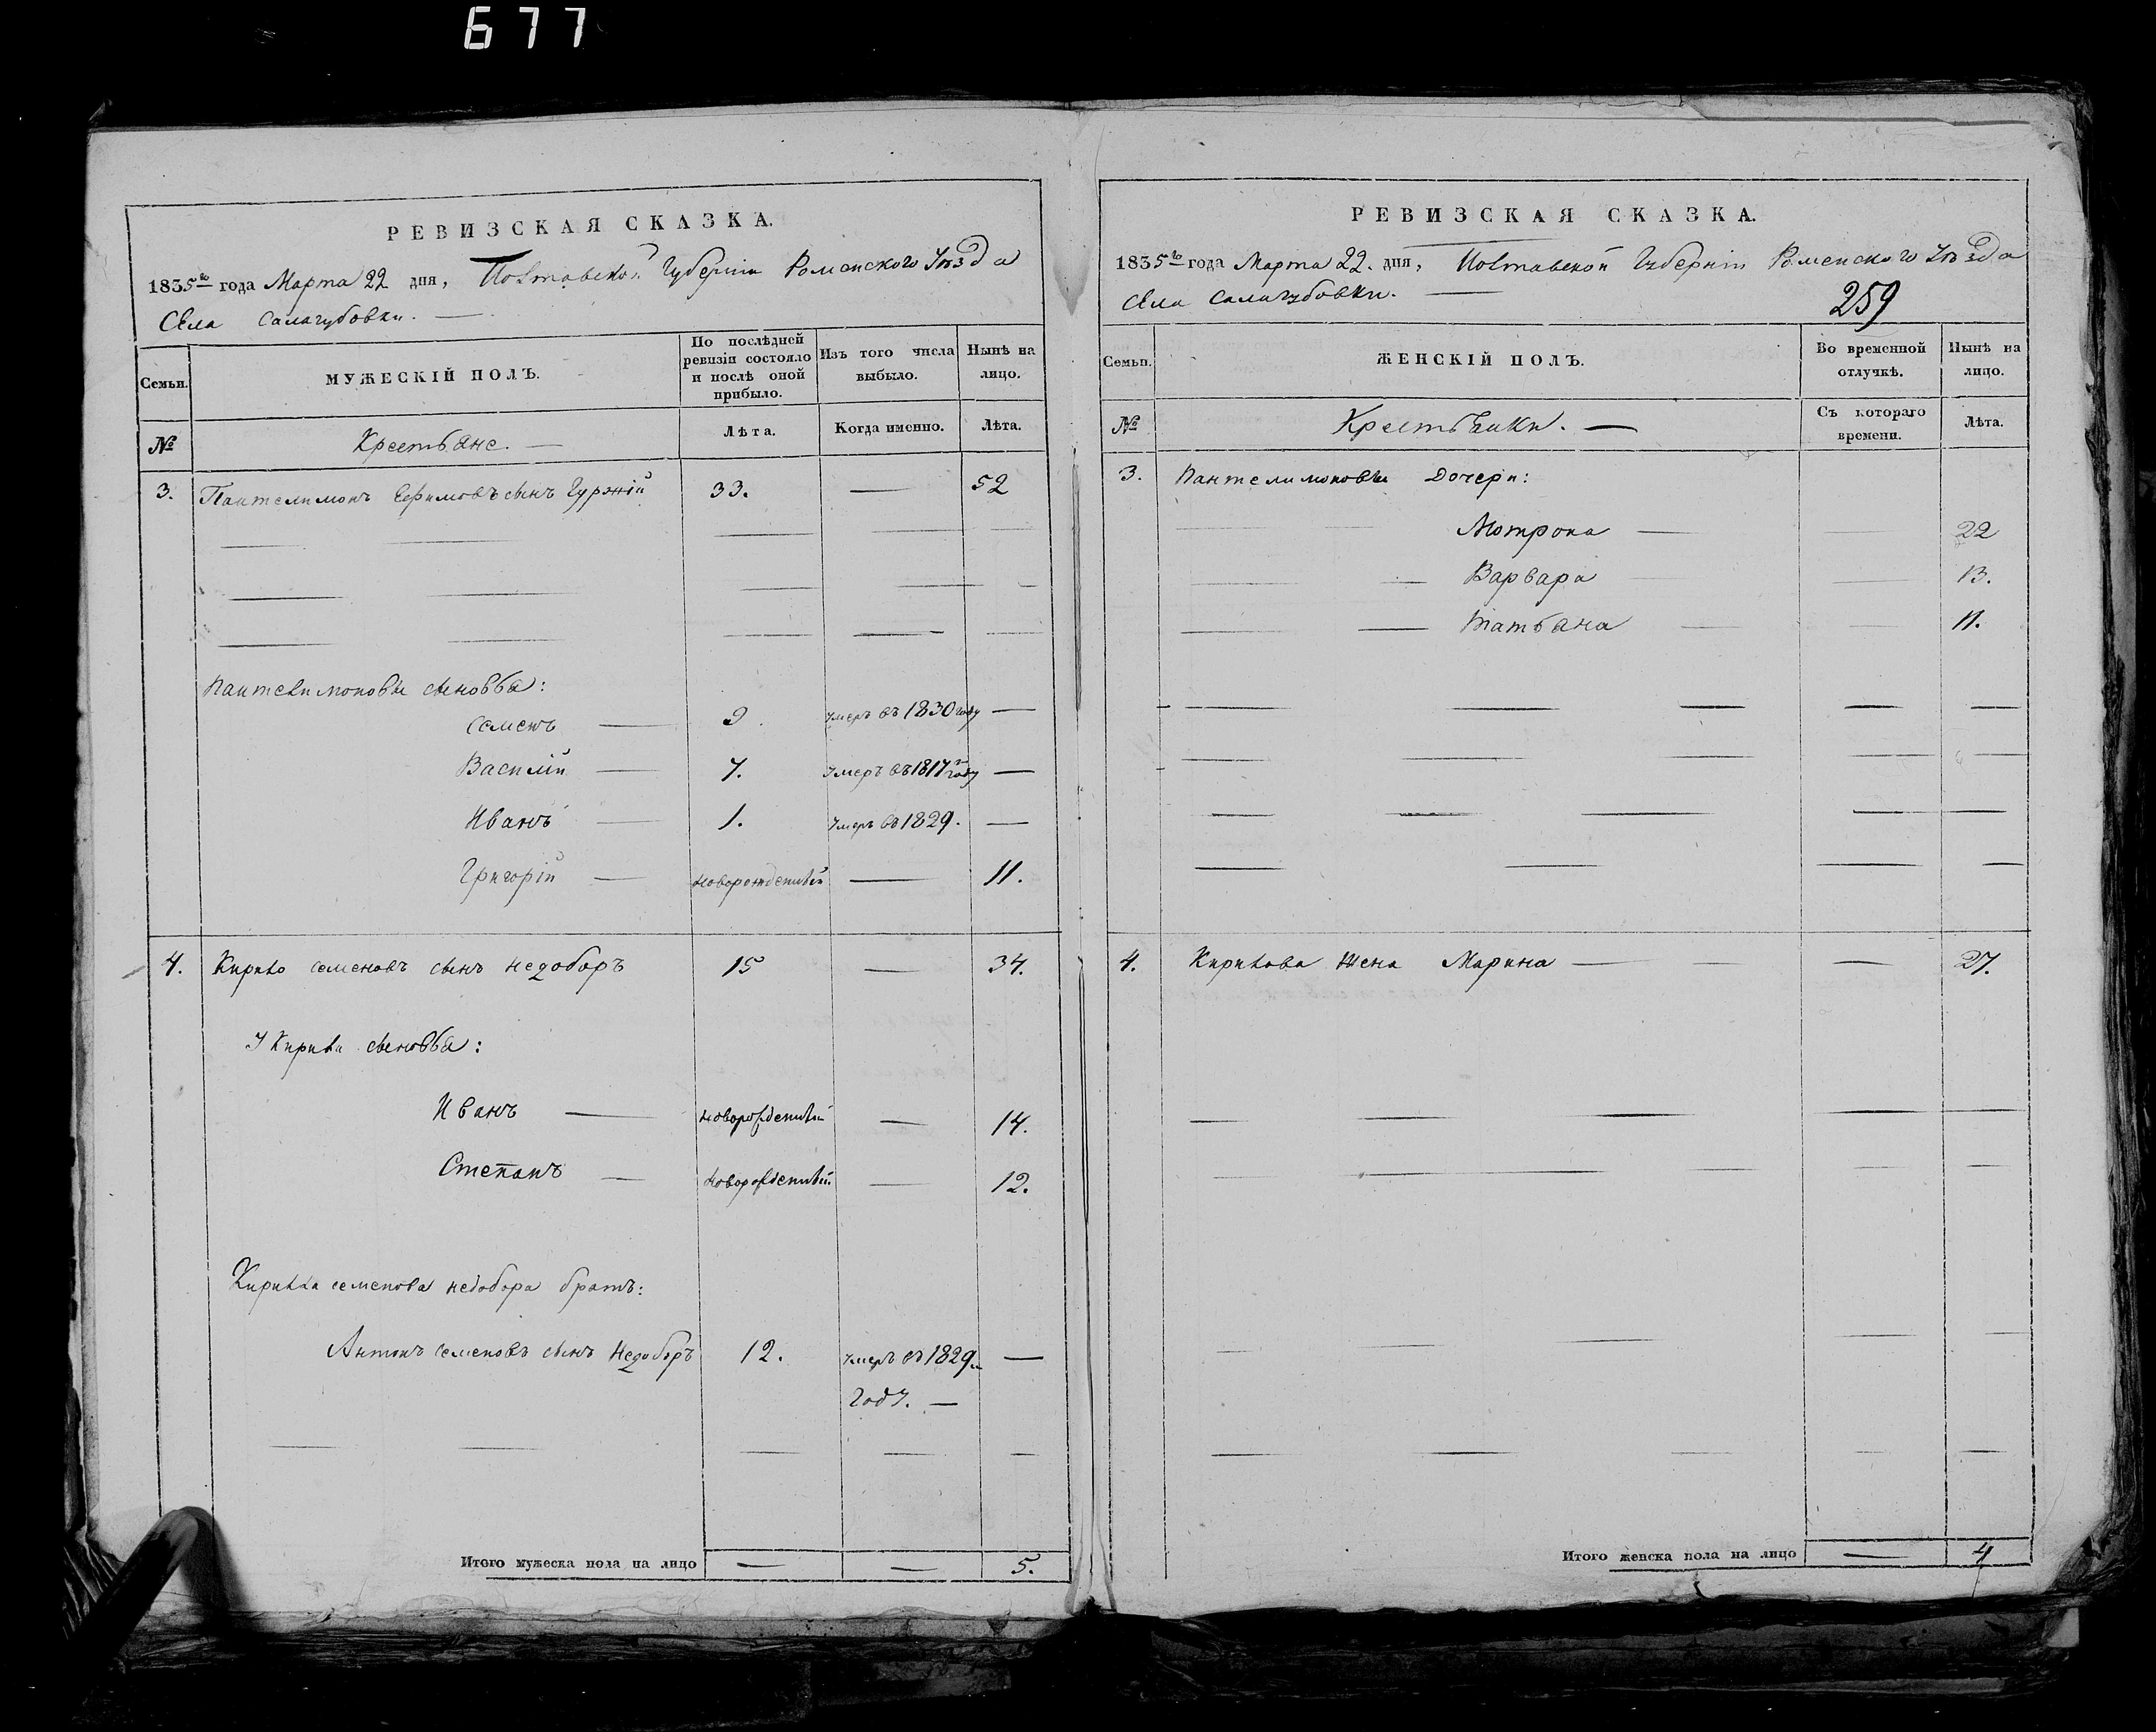 677
РЕВИЗСКАЯ СКАЗКА.
1835го года Марта 22 дня, Полтавской Губерніи Роменского Уѣзда
Села Салогубовки.
Семьи.
МУЖЕСКІЙ ПОЛЪ.
По послѣдней ревизіи состояло и послѣ оной прибыло.
Изъ того числа выбыло.
Нынѣ на лицо.
№
Крестьяне.
Лѣта.
Когда именно.
Лѣта.
3. Пантелимонъ Ефимовъ сынъ Гуржій 33. — 52
Пантелимоновы сыновья:
Семенъ — 9. умеръ въ 1830 году —
Василій — 7. умеръ въ 1817м году —
Иванъ — 1. умеръ въ 1829. —
Григорій — новорожденный — 11.
4. Кирило семеновъ сынъ недоборъ 15 — 34.
У Кирила сыновья:
Иванъ — новорожденный — 14.
Степанъ — новорожденный — 12.
Кирила семенова недобора братъ:
Антонъ семеновъ сынъ недоборъ 12. умеръ въ 1829м —
году. —
Итого мужеска пола на лицо — — 5.
РЕВИЗСКАЯ СКАЗКА.
1835го года Марта 22. дня, Полтавской Губерніи Роменского Уѣзда
Села Салогубовки. —
259
Семьи.
ЖЕНСКІЙ ПОЛЪ.
Во временной отлучкѣ.
Нынѣ на лицо.
№
Крестьянки. —
Съ котораго времени.
Лѣта.
3. Пантелимоновы Дочери:
Мотрона — — 22
Варвара — — 13.
Татьяна — — 11.
4. Кирилова Жена Марина — — 27.
Итого женска пола на лицо — 4